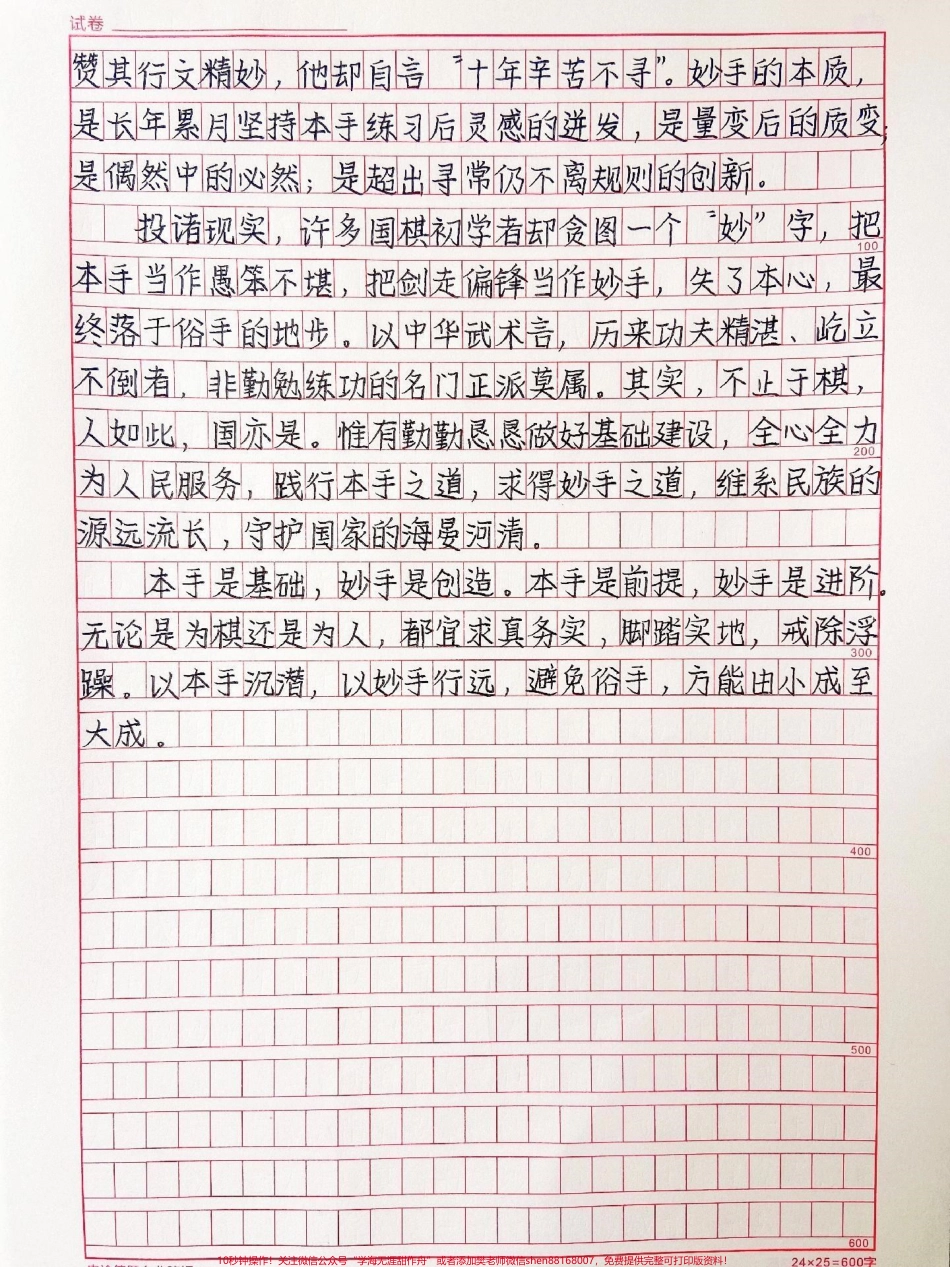 试卷
赞其行文精妙，他却自言“十年辛苦不寻”。妙手的本质，
是长年累月坚持本手练习后灵感的迸发，是量变后的质变；
是偶然中的必然；是超出寻常仍不离规则的创新。
投诸现实，许多国棋初学者却贪图一个“妙”字，把
100
本手当作愚笨不堪，把剑走偏锋当作妙手，失了本心，最
终落于俗手的地步。以中华武术言，历来功夫精湛、屹立
不倒者，非勤勉练功的名门正派莫属。其实，不止于棋，
人如此，国亦是。惟有勤勤恳恳做好基础建设，全心全力
200
为人民服务，践行本手之道，求得妙手之道，维系民族的
源远流长，守护国家的海晏河清。
本手是基础，妙手是创造。本手是前提，妙手是进阶。
无论是为棋还是为人，都宜求真务实，脚踏实地，戒除浮
300
躁。以本手沉潜，以妙手行远，避免俗手，方能由小成至
大成。
400
500
600
10秒钟操作！关注微信公众号“学海无涯甜作舟”或者添加吴老师微信shen88168007，免费提供完整可打印版资料！
24×25=600字